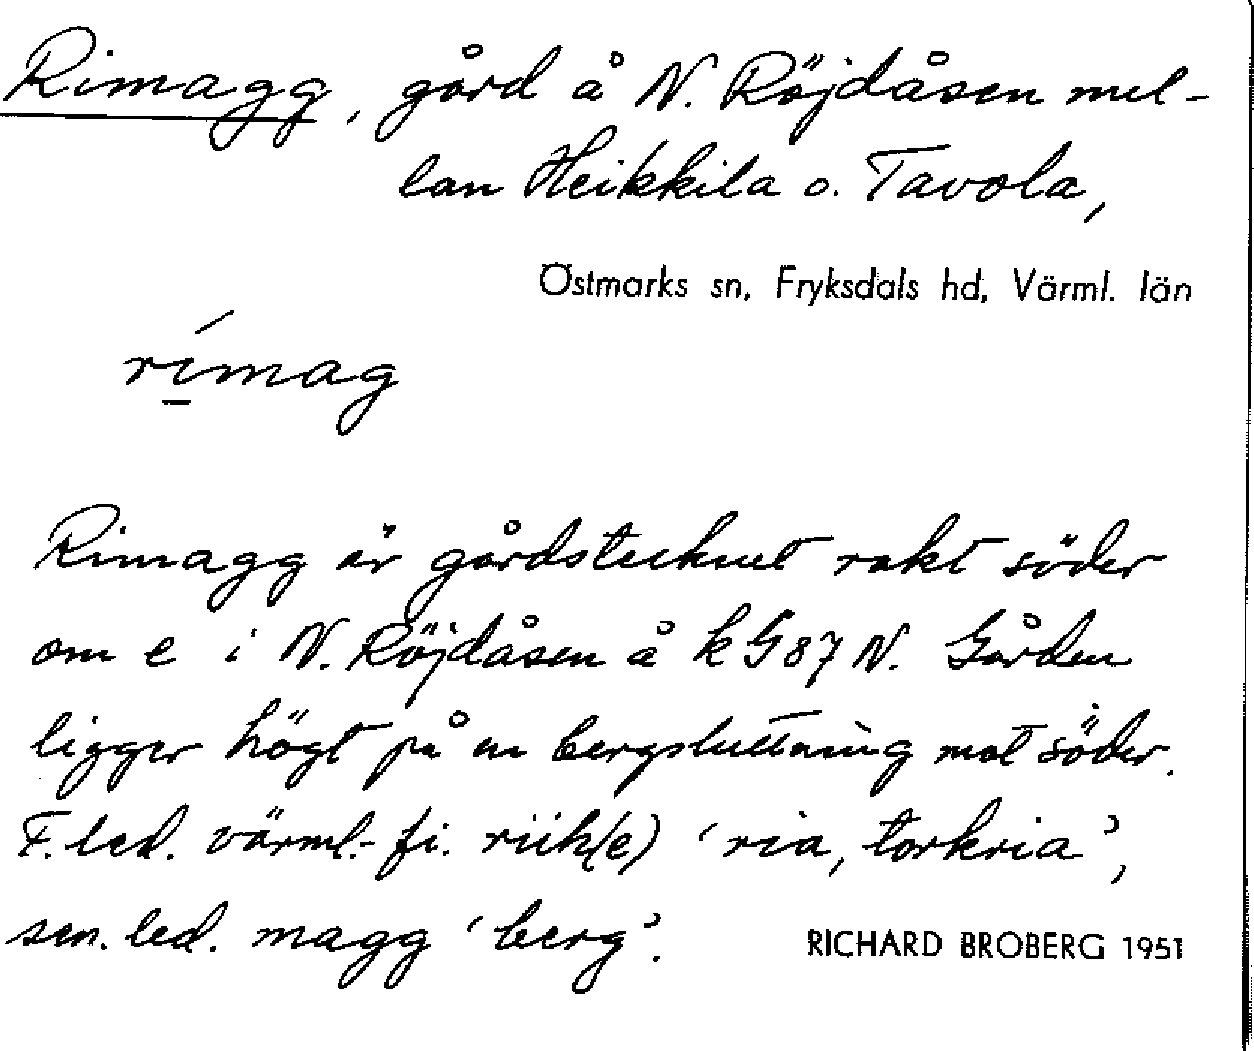 Rimagg, gård å N. Röjdåsen mel-
lan Heikkila o. Tavola,
Östmarks sn, Fryksdals hd, Värml. län
rímag
Rimagg är gårdstecknet rakt söder
om e i N. Röjdåsen å k G87 N. Gården
ligger högt på en bergsluttning mot söder.
F. led. värml.-fi. riih(e) 'ria, torkria',
sen. led. magg 'berg'.
RICHARD BROBERG 1951